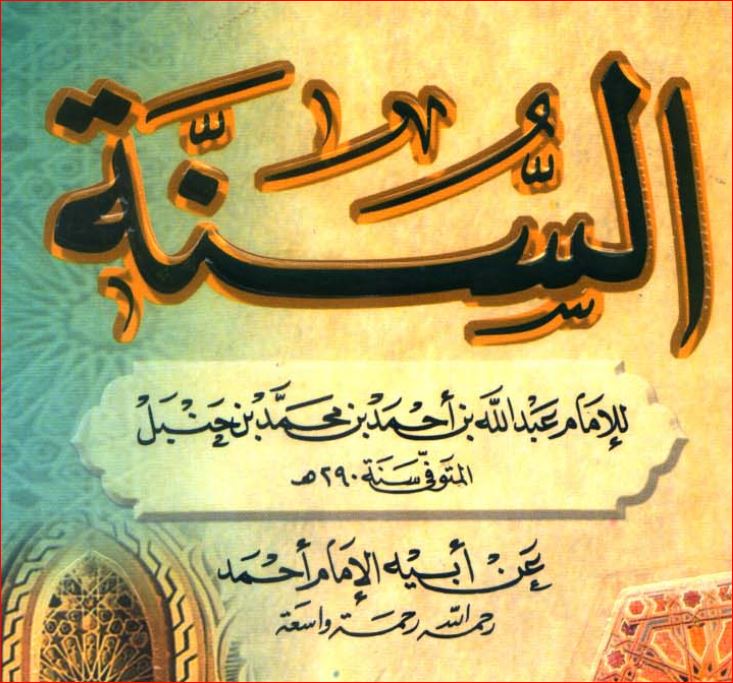 السُّنَّة
للإمَام عَبْدالله بن أحْمَد بن محَمَّد بْن حَنْبَل
المتَوفىّ سَنَة ٢٩٠هـ
عَنْ أَبيْه الإمَام أحْمَد
رحمه الله رحمة واسعة